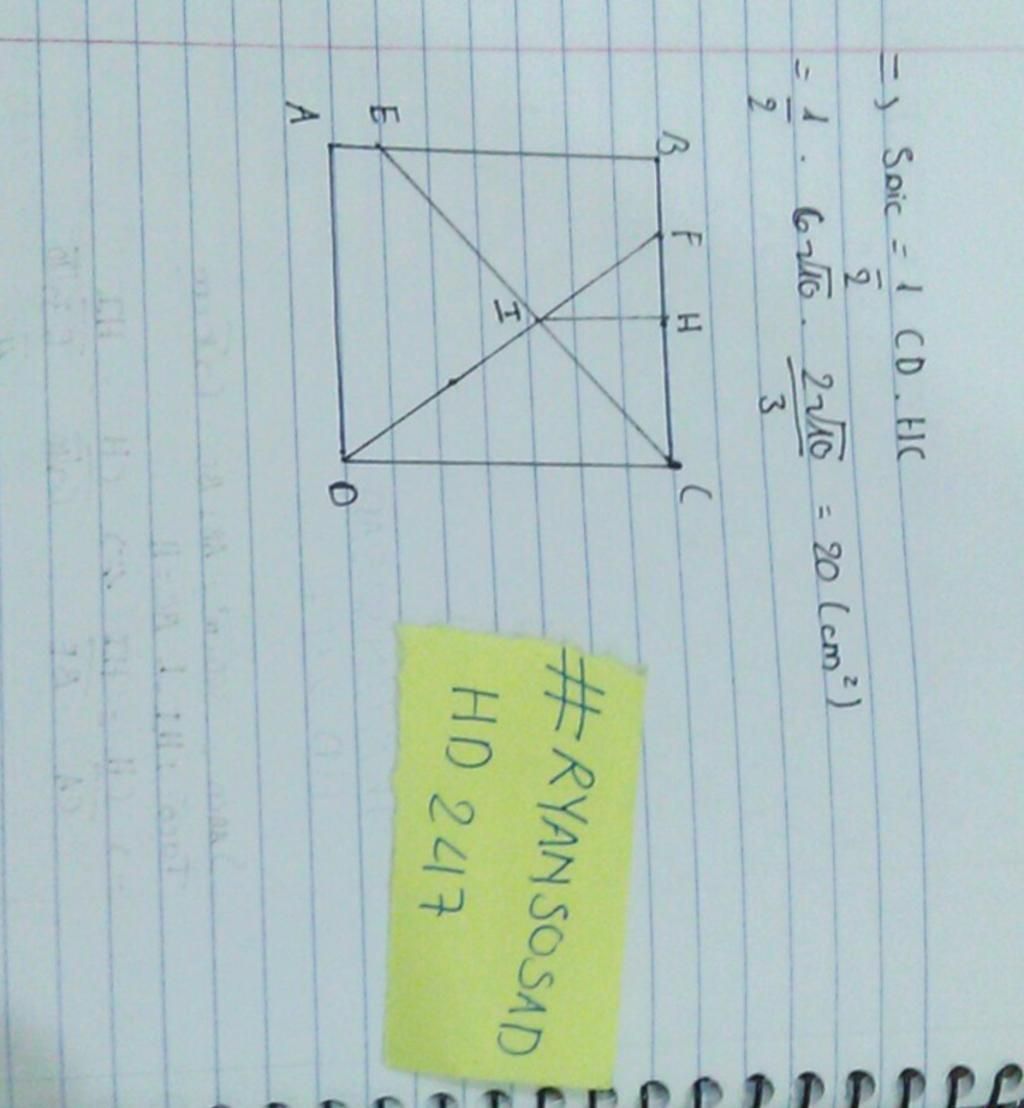 => SDIC = 1/2 CD . HC
= 1/2 . 6√10 . 2√10/3 = 20 (cm²)
B F H C
I
E
A D
#RYANSOSAD
HD 247